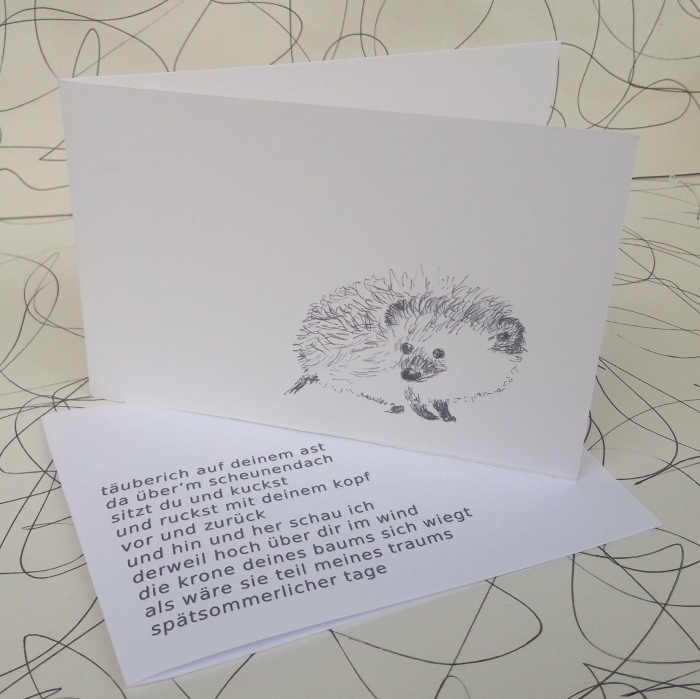 täuberich auf deinem ast
da über'm scheunendach
sitzt du und kuckst
und ruckst mit deinem kopf
vor und zurück
und hin und her schau ich
derweil hoch über dir im wind
die krone deines baums sich wiegt
als wäre sie teil meines traums
spätsommerlicher tage